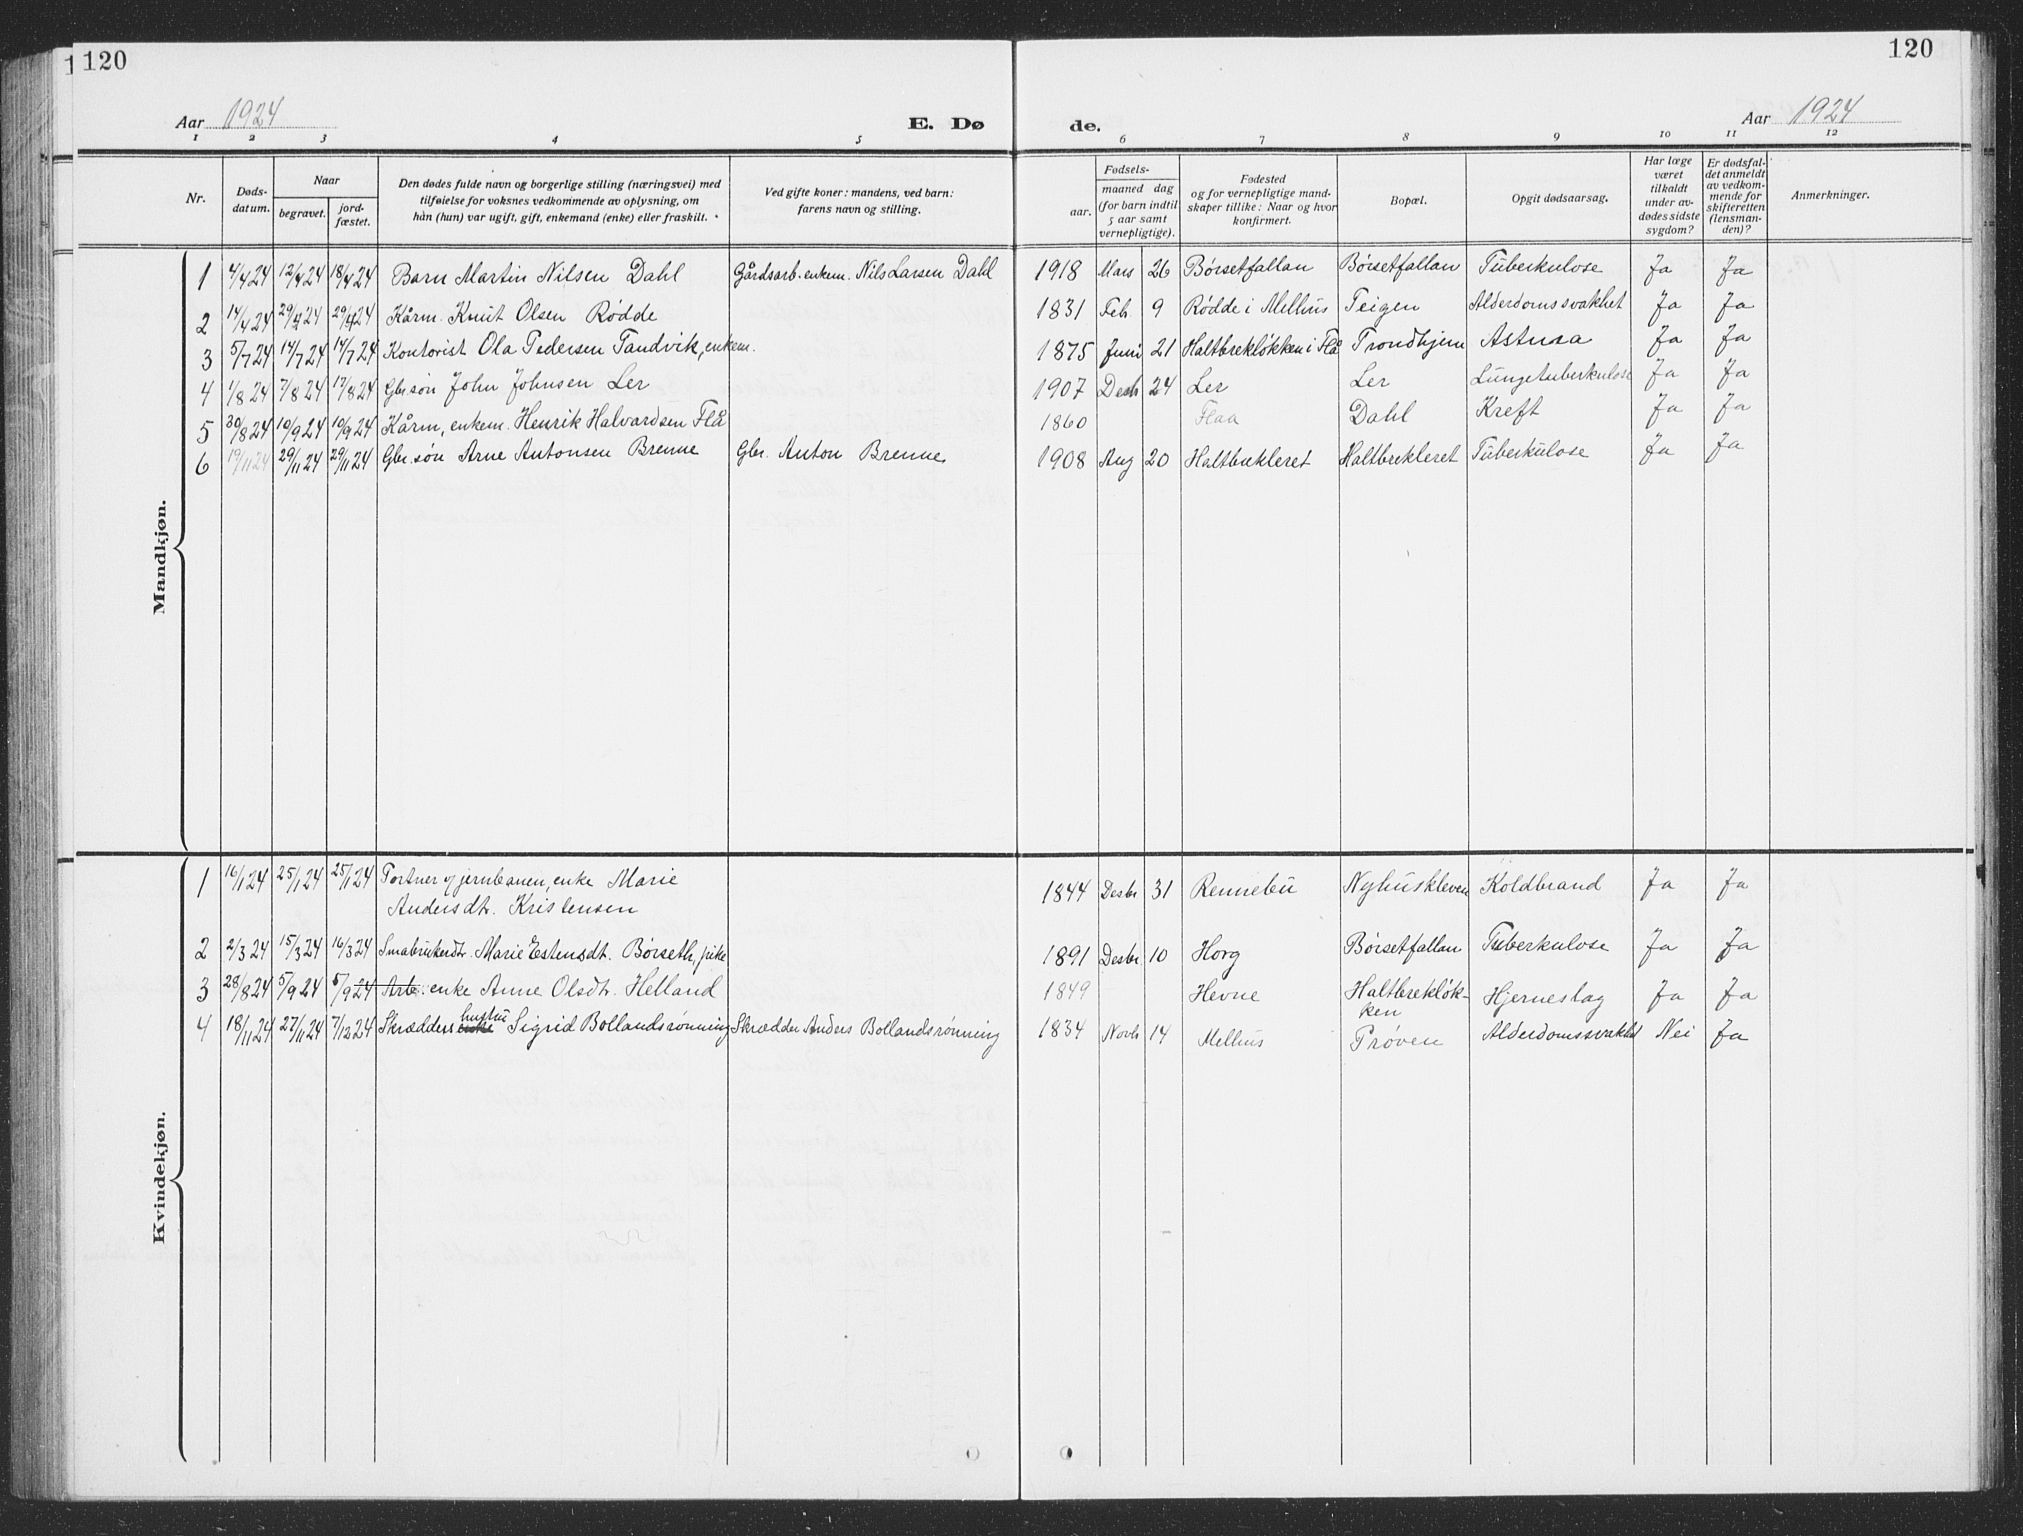 120
120
Aar 1924
E. Dø
de.
Aar 1924
1 2 3 4 5 6 7 8 9 10 11 12
Nr.
Døds-
datum.
Naar
begravet.
jord-
fæstet.
Den dødes fulde navn og borgerlige stilling (næringsvei) med
tilføielse for voksnes vedkommende av oplysning, om
han (hun) var ugift, gift, enkemand (enke) eller fraskilt.
Ved gifte koner: mandens, ved barn:
farens navn og stilling.
Fødsels-
aar.
maaned dag
(for barn indtil
5 aar samt
vernepligtige).
Fødested
og for vernepligtige mand-
skaper tillike: Naar og hvor
konfirmert.
Bopæl.
Opgit dødsaarsag.
Har læge
været
tilkaldt
under av-
dødes sidste
sygdom?
Er dødsfal-
det anmeldt
av vedkom-
mende for
skifteretten
(lensman-
den)?
Anmerkninger.
Mandkjøn.
1 4/4 24 12/4 24 18/4 24 Barn Martin Nilsen Dahl Gårdsarb. enkem. Nils Larsen Dahl 1918 Mars 26 Børsetfallan Børsetfallan Tuberkulose Ja Ja
2 14/4 24 29/4 24 29/4 24 Kårm. Knut Olsen Rødde 1831 Feb. 9 Rødde i Melhus Teigen Alderdomssvakhet Ja Ja
3 5/7 24 14/7 24 14/7 24 Kontorist Ola Pedersen Tandvik, enkem. 1875 Juni 21 Haltbrekløkken i Flå Trondhjem Astma Ja Ja
4 1/8 24 7/8 24 17/8 24 Gbr. søn John Johnsen Ler 1907 Desb 24 Ler Ler Lungetuberkulose Ja Ja
5 30/8 24 10/9 24 10/9 24 Kårm, enkem. Henrik Halvardsen Flå 1860 Flaa Dahl Kreft Ja Ja
6 19/11 24 29/11 24 29/11 24 Gbr. søn Arne Antonsen Brenne Gbr. Anton Brenne 1908 Aug 20 Haltbrekleret Haltbrekleret Tuberkulose Ja Ja
Kvindekjøn.
1 16/1 24 25/1 24 25/1 24 Portner v/ jernbanen, enke Marie 1844 Desbr 31 Rennebu Nyhuskleven Koldbrand Ja Ja
Andersdt. Kristensen
2 2/3 24 15/3 24 16/3 24 Småbrukerdt. Marie Estensdt. Børseth, pike 1891 Desbr 10 Horg Børsetfallan Tuberkulose Ja Ja
3 28/8 24 5/9 24 5/9 24 Arb. enke Anne Olsdt. Helland 1849 Hevne Haltbrekløk- Hjerneslag Ja Ja
ken
hustru
4 18/11 24 27/11 24 7/12 24 Skrædders enke Sigrid Bollandsrønning Skrædder Anders Bollandsrønning 1834 Novb 14 Melhus Prøven Alderdomssvakhet Nei Ja